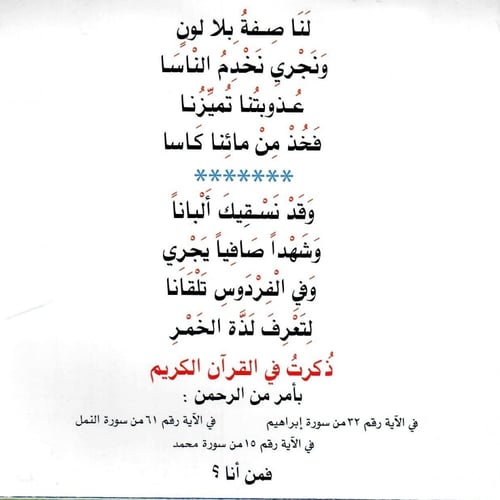 لَنَا صِفةُ بِلا لونٍ
وَنَجْرِي نَخْدِمُ النْاسَا
عُذوبتُنا تُميِّزُنا
فَخُذْ مِنْ مائِنا كَاسا
*******
وَقَدْ نَسْقِيكَ أَلْباناً
وَشَهْداً صَافِياً يَجْرِي
وَفِي الْفِرْدَوسِ تَلْقَانا
لِتَعْرِفَ لَذَّة الخَمْرِ
ذُكرتُ في القرآن الكريم
بأمر من الرحمن :
في الآية رقم ٣٢ من سورة إبراهيم في الآية رقم ٦١ من سورة النمل
في الآية رقم ١٥ من سورة محمد
فمن أنا ؟